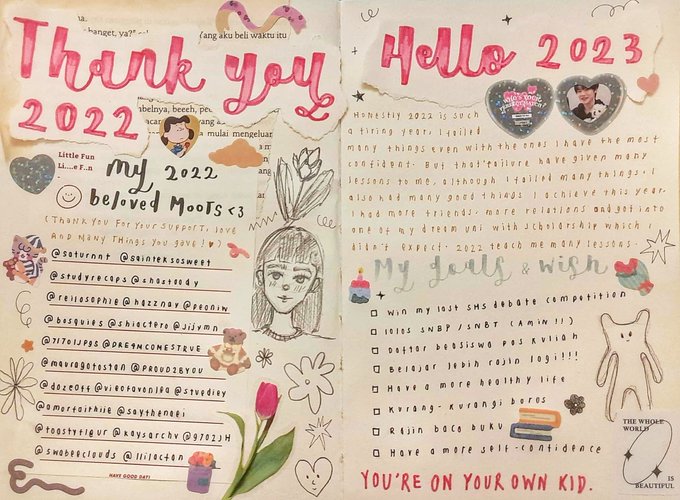 Thank you
2022
banget, ya?"
yang aku beli waktu itu
mulai mengeluar
Little Fun
My 2022
beloved Moots <3
(Thank you for your support, love
and many things you gave! ♥)
@saturnnt @sainteksosweet
@studyrecaps
@hazznay @peoniw
@bosquies @jijymn
@DRE4MCOMESTRUE
@PROUD2BYOU
@saythenaei
@kaysarchv @9702JH
@swaberclouds
HAVE GOOD DAY!
Hello 2023
Honestly 2022 is such
a tiring year, I failed
many things even with the ones I have the most
confident. But that failure have given many
lessons to me, although I failed many things, I
also had many good things I achieve this year.
I had more friends, more relations and got into
one of my dream uni with scholarship which I
didn't expect. 2022 teach me many lessons.
My goals & wish
Win my last SHS debate competition
Lolos SNBP / SNBT (Amin!!)
Daftar beasiswa pas kuliah
Belajar lebih rajin lagi!!!
Have a more healthy life
Kurang-kurangi boros
Rajin baca buku
Have a more self-confidence
YOU'RE ON YOUR OWN KID.
THE WHOLE
WORLD
IS
BEAUTIFUL